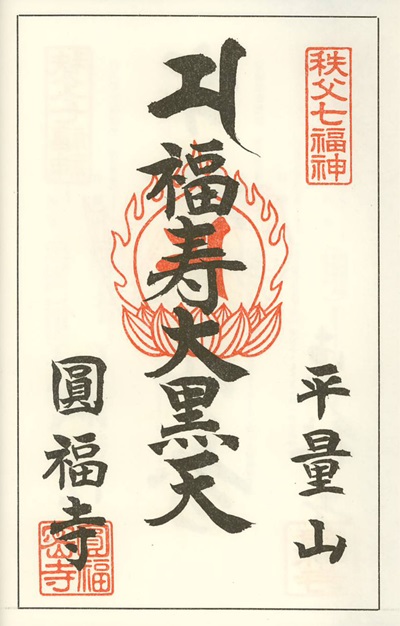 秩父七福神
平量山
福寿大黒天
圓福寺
圓福寺